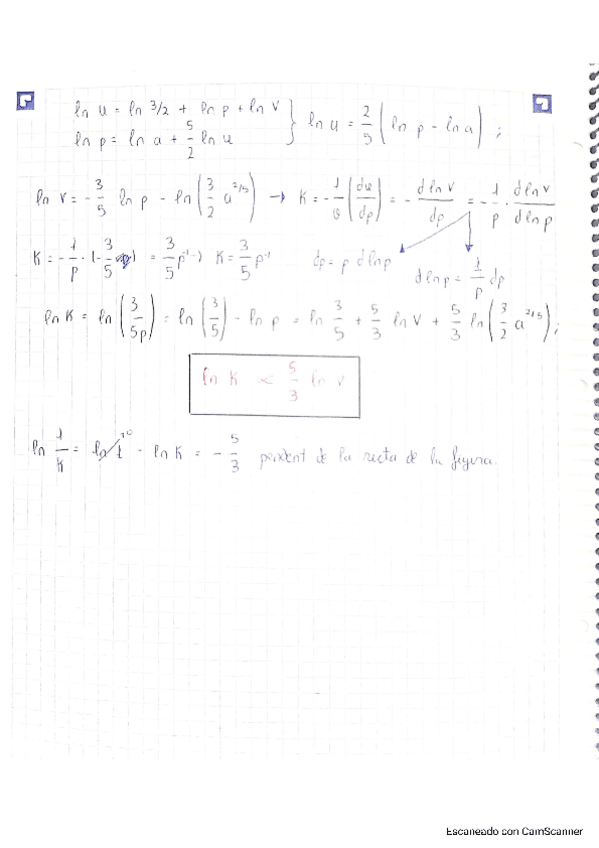 ln u = ln 3/2 + ln p + ln V } ln u = 2/5 (ln p - ln a) ;
ln p = ln a + 5/2 ln u
ln V = - 3/5 ln p - ln (3/2 a^2/5) → K = - 1/v (dv/dp) = - d ln V / dp = - 1/p · d ln V / d ln p
K = - 1/p · (- 3/5 ) = 3/5 p^-1 → K = 3/5 p^-1
dp = p d ln p
d ln p = 1/p dp
ln K = ln (3/5p) = ln (3/5) - ln p = ln 3/5 + 5/3 ln V + 5/3 ln (3/2 a^2/5) ;
ln K ∝ 5/3 ln V
ln 1/K = ln 1^0 - ln K = - 5/3 pendent de la recta de la figura.
Escaneado con CamScanner